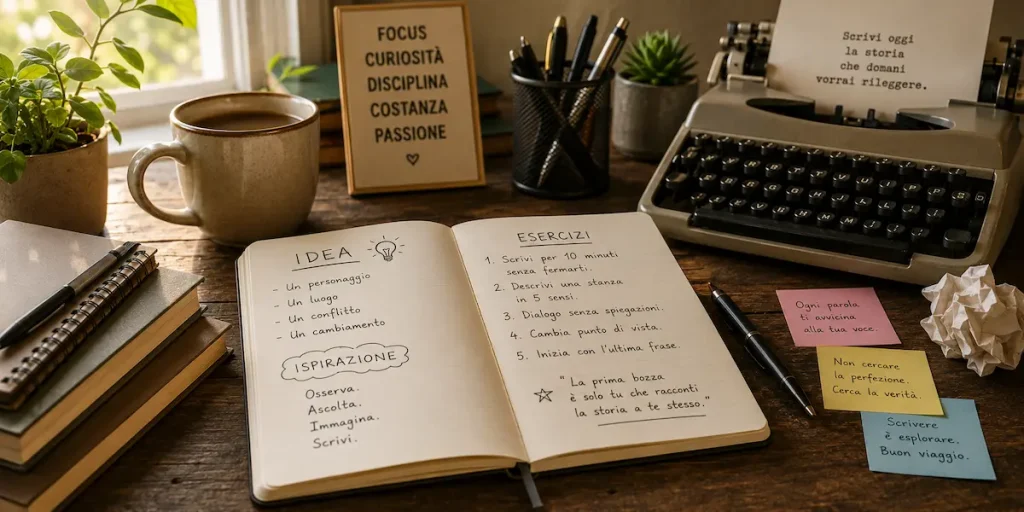 FOCUS
CURIOSITÀ
DISCIPLINA
COSTANZA
PASSIONE
Scrivi oggi
la storia
che domani
vorrai rileggere.
IDEA
- Un personaggio
- Un luogo
- Un conflitto
- Un cambiamento
ISPIRAZIONE
Osserva.
Ascolta.
Immagina.
Scrivi.
ESERCIZI
1. Scrivi per 10 minuti
senza fermarti.
2. Descrivi una stanza
in 5 sensi.
3. Dialogo senza spiegazioni.
4. Cambia punto di vista.
5. Inizia con l'ultima frase.
"La prima bozza
è solo tu che racconti
la storia a te stesso."
Ogni parola
ti avvicina
alla tua voce.
Non cercare
la perfezione.
Cerca la verità.
Scrivere
è esplorare.
Buon viaggio.